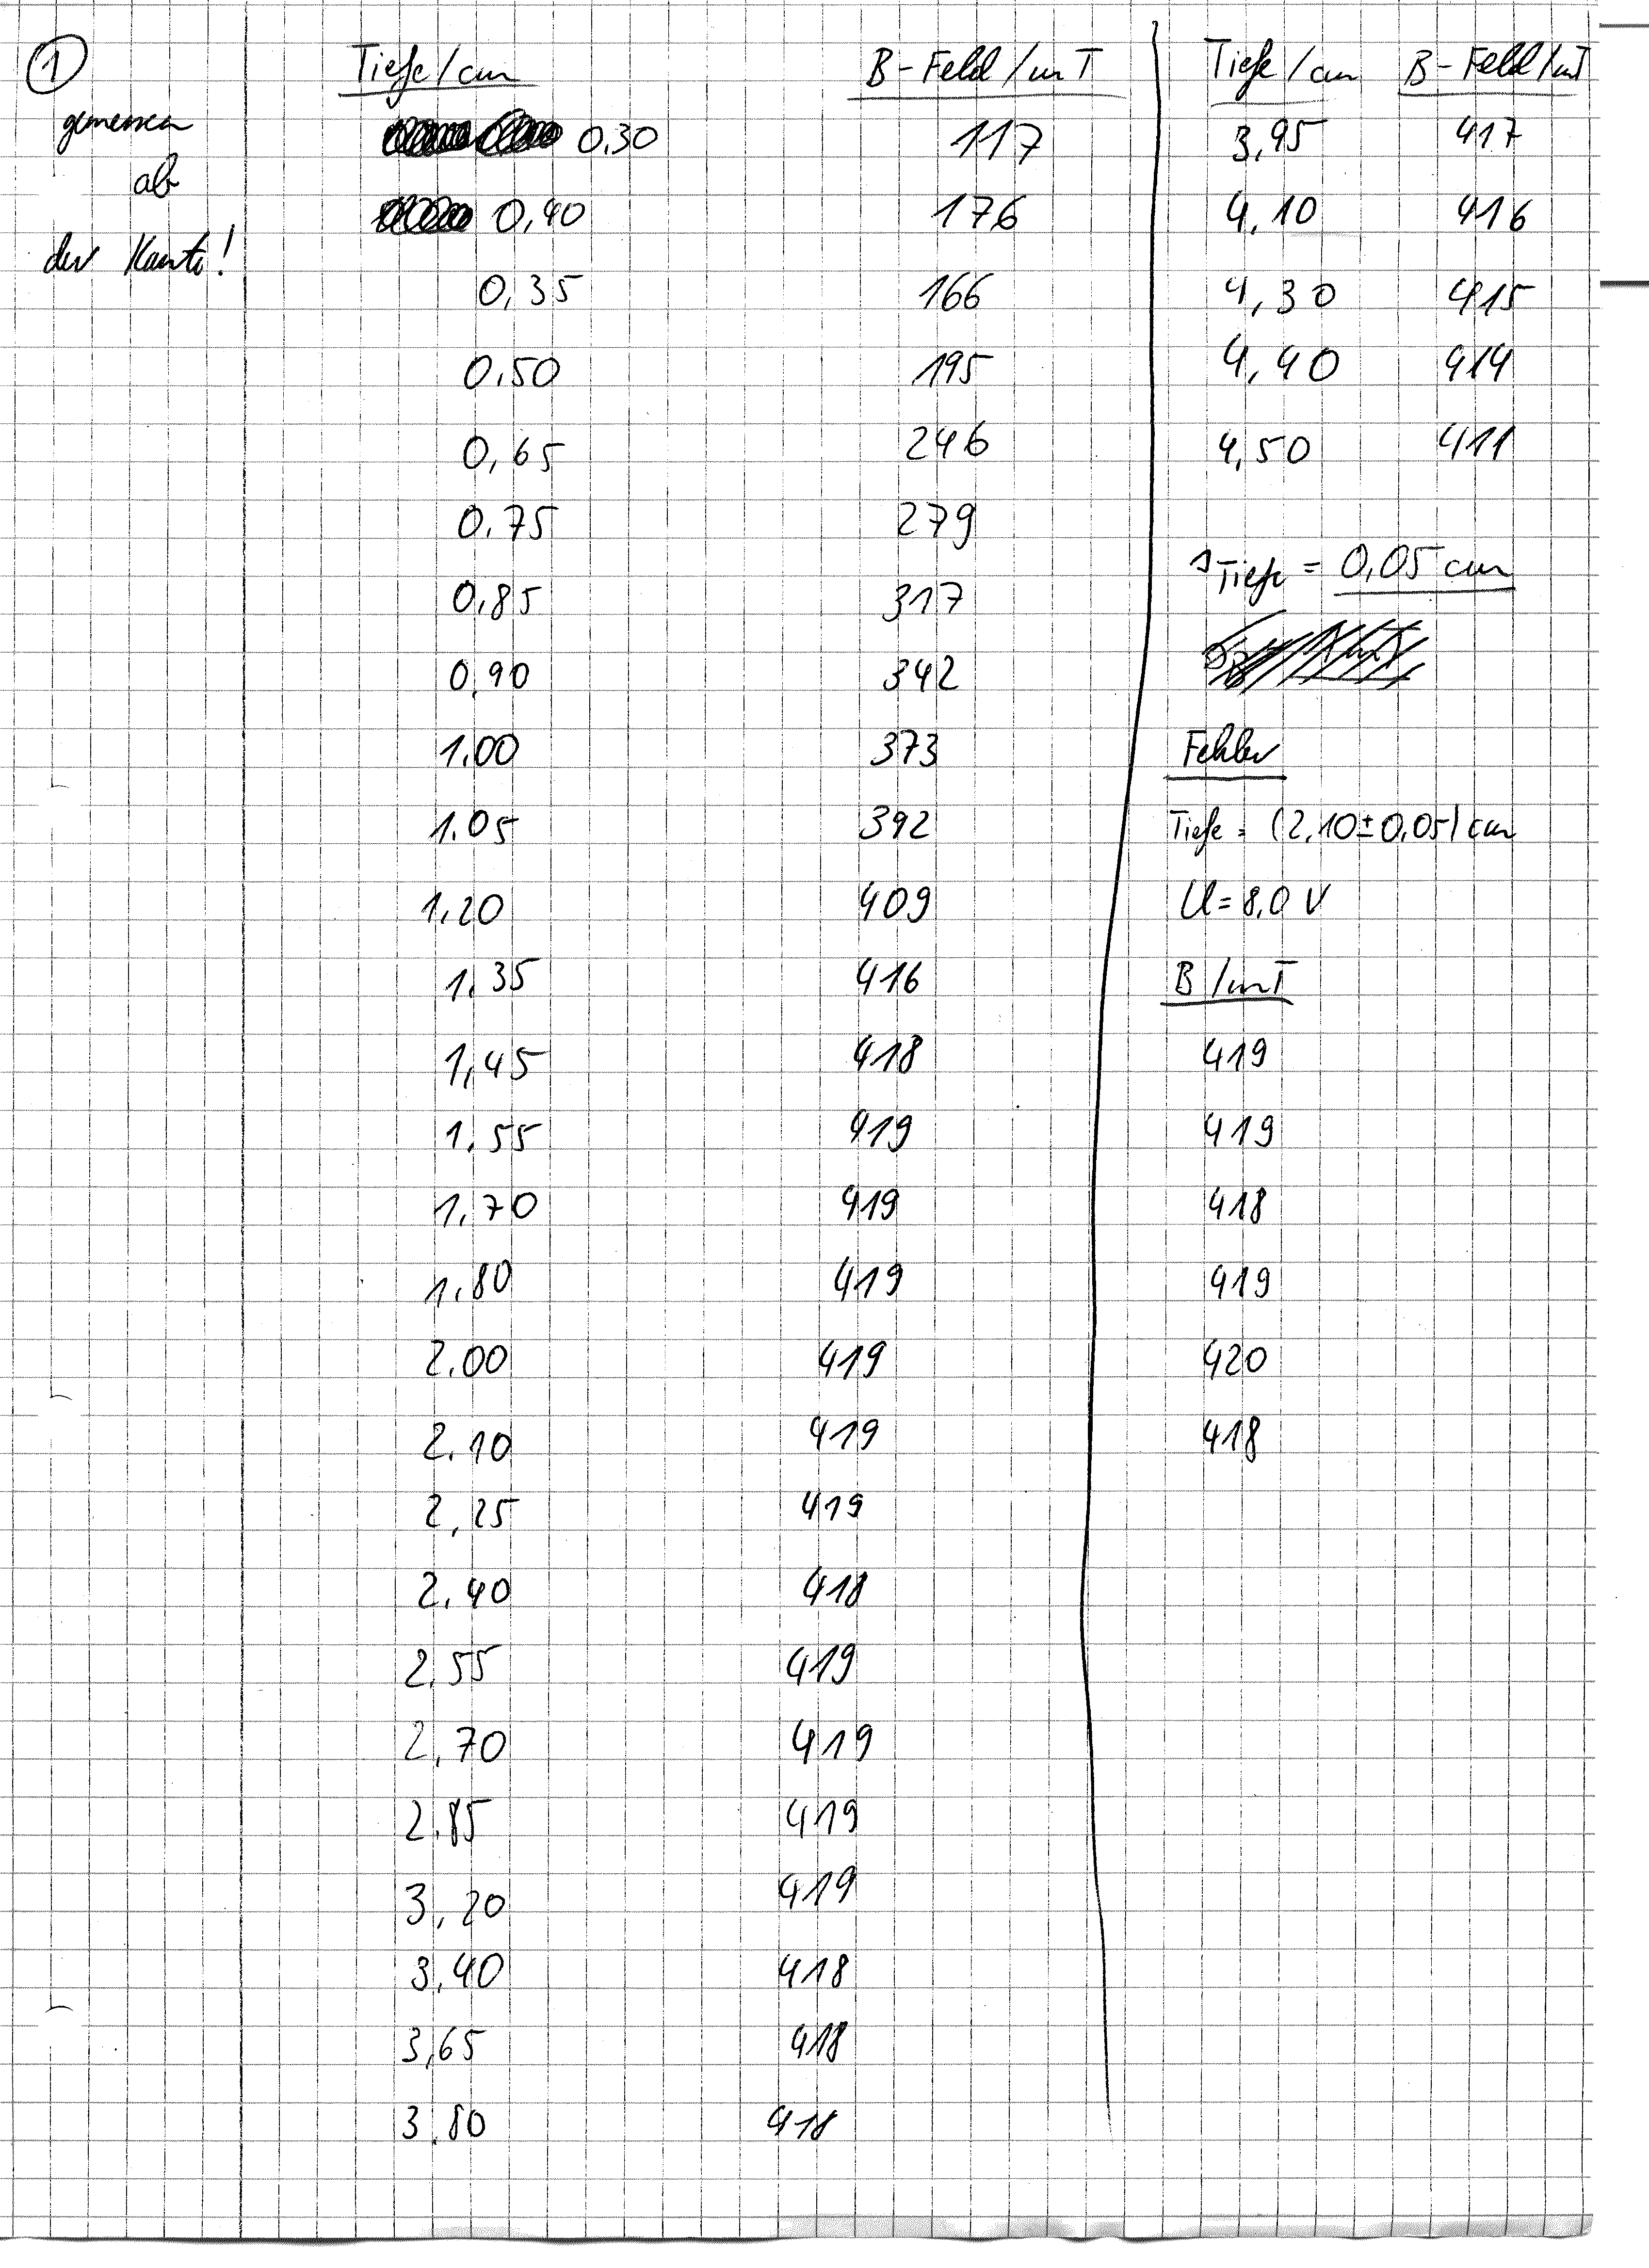 1
gemessen
ab
der Kante!
Tiefe/cm B-Feld/mT
0,30 117
0,40 176
0,35 166
0,50 195
0,65 246
0,75 279
0,85 317
0,90 342
1,00 373
1,05 392
1,20 409
1,35 416
1,45 418
1,55 419
1,70 419
1,80 419
2,00 419
2,10 419
2,25 419
2,40 418
2,55 419
2,70 419
2,85 419
3,20 419
3,40 418
3,65 418
3,80 418
Tiefe/cm B-Feld/mT
3,95 417
4,10 416
4,30 415
4,40 414
4,50 411
s Tiefe = 0,05 cm
Fehler
Tiefe = (2,10±0,05) cm
U = 8,0 V
B/mT
419
419
418
419
420
418